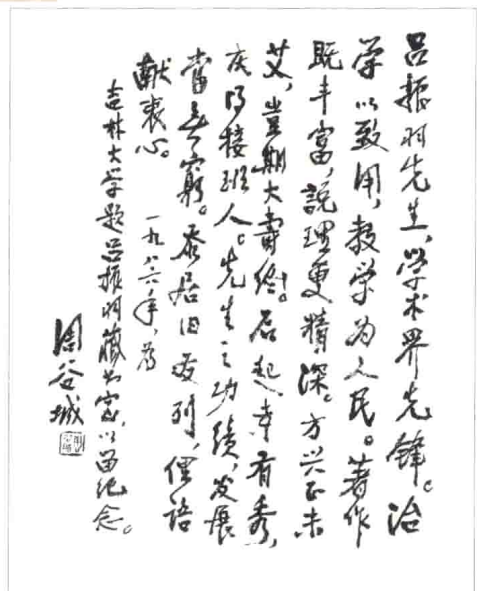 吕振羽先生,学术界先锋。治
学以致用,教学为人民。著作
既丰富,说理更精深。方兴正未
艾,岂期大寿终。后起幸有秀,
庆得接班人。先生之功绩,发展
当无穷。忝居旧友列,俚语
献衷心。
一九八六年,为
吉林大学题吕振羽藏书室,以留纪念。
周谷城